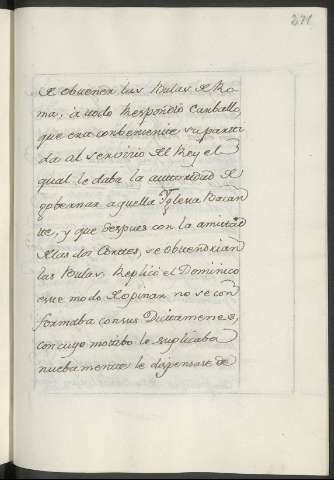 271
de obtener las Bulas de Ro
ma, á todo Respondió Carballo
que era combeniente su parti
da al servicio del Rey el
qual le daba la autoridad de
gobernar aquella Yglesia Bacan
te, y que despues con la amistad
de las dos Cortes, se obtendrian
las Bulas. Replicó el Dominico
este modo de opinar no se con
formaba con sus Dictamenes,
con cuyo motibo le suplicaba
nuebamente le dispensase de